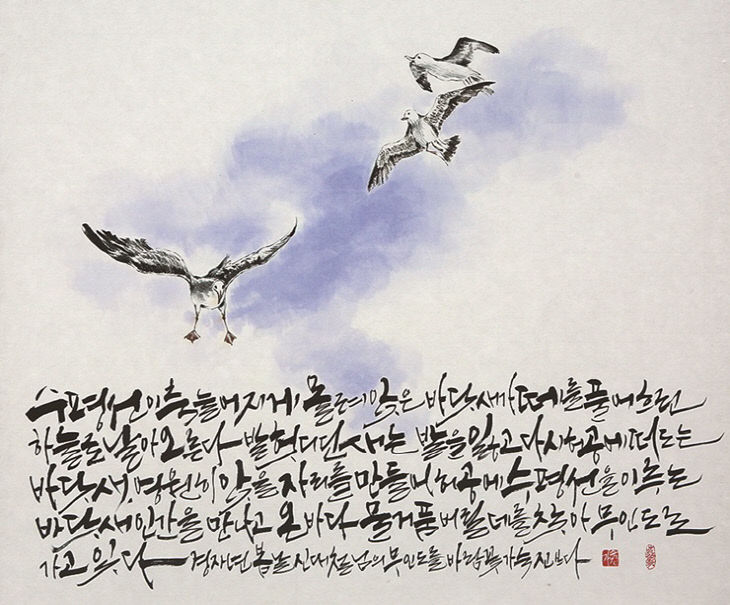 수평선이 축 늘어지게 몰려와 앉은 바닷새가 떼를 풀어 흐린
하늘로 날아오른다 발 헛디딘 새는 발을 잃고 다시 허공에 떠도는
바닷새, 영원히 앉을 자리를 만들어 허공에 수평선을 이루는
바닷새 인간을 만나고 온 바다 물거품 버릴 데를 찾아 무인도로
가고 있다 경자년 봄날 신대철님의 무인도를 바람꽃